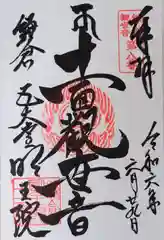 奉拝
令和六年
二月廿九日
十一面観世音
鎌倉
五大堂明王院